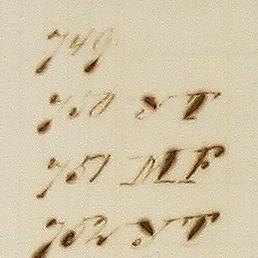 749
750 S T
751 N I P
752 S T